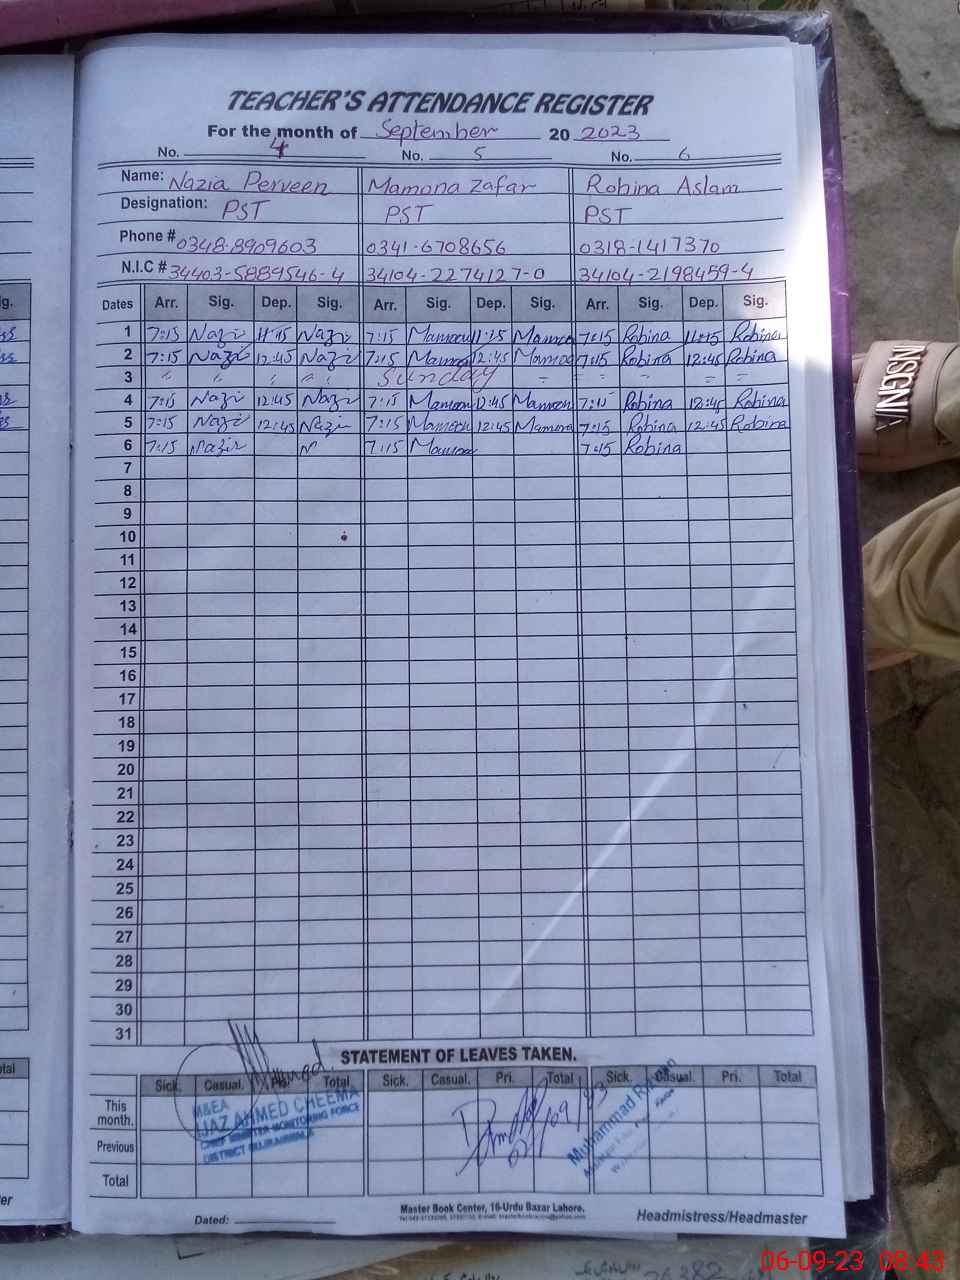 TEACHER'S ATTENDANCE REGISTER
For the month of September 20 2023
No. 4 No. 5 No. 6
Name: Nazia Perveen Mamona Zafar Robina Aslam
Designation: PST PST PST
Phone # 0348-8909603 0341-6708656 0318-1417370
N.I.C # 34403-5889546-4 34104-2274127-0 34104-2198459-4
Dates Arr. Sig. Dep. Sig. Arr. Sig. Dep. Sig. Arr. Sig. Dep. Sig.
1 7:15 Nazi 11:15 Nazi 7:15 Mamoon 11:15 Mamona 7:15 Robina 11:15 Robina
2 7:15 Nazi 12:45 Nazi 7:15 Mamona 12:45 Mamona 7:15 Robina 12:45 Robina
3 Sunday
4 7:15 Nazi 12:45 Nazi 7:15 Mamoon 12:45 Mamoon 7:15 Robina 12:45 Robina
5 7:15 Nazi 12:45 Nazi 7:15 Mamoon 12:45 Mamona 7:15 Robina 12:45 Robina
6 7:15 Nazi N 7:15 Mamona 7:15 Robina
7
8
9
10
11
12
13
14
15
16
17
18
19
20
21
22
23
24
25
26
27
28
29
30
31
STATEMENT OF LEAVES TAKEN.
Sick. Casual. Pri. Total Sick. Casual. Pri. Total Sick. Casual. Pri. Total
This month.
Previous
Total
M&EA
IJAZ AHMED CHEEMA
CHIEF MINISTER MONITORING FORCE
DISTRICT GUJRANWALA
Muhammad
Master Book Center, 16-Urdu Bazar Lahore.
Dated:
Headmistress/Headmaster
NSGNIA
06-09-23 08:43